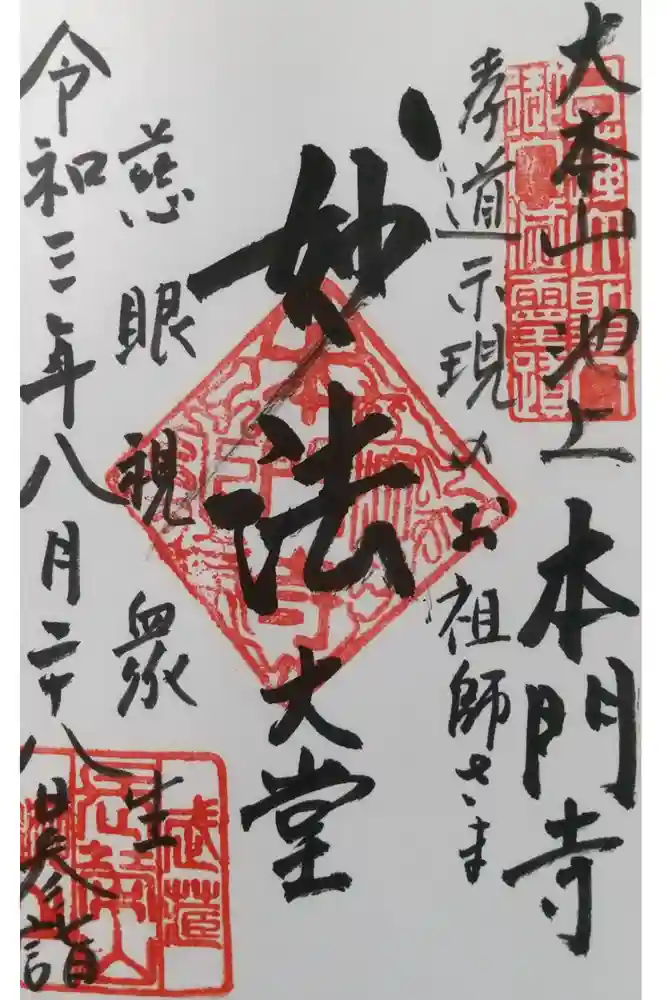 大本山 池上 本門寺
孝道示現のお祖師さま
妙法
大堂
慈眼視衆生
令和三年八月二十八日参詣